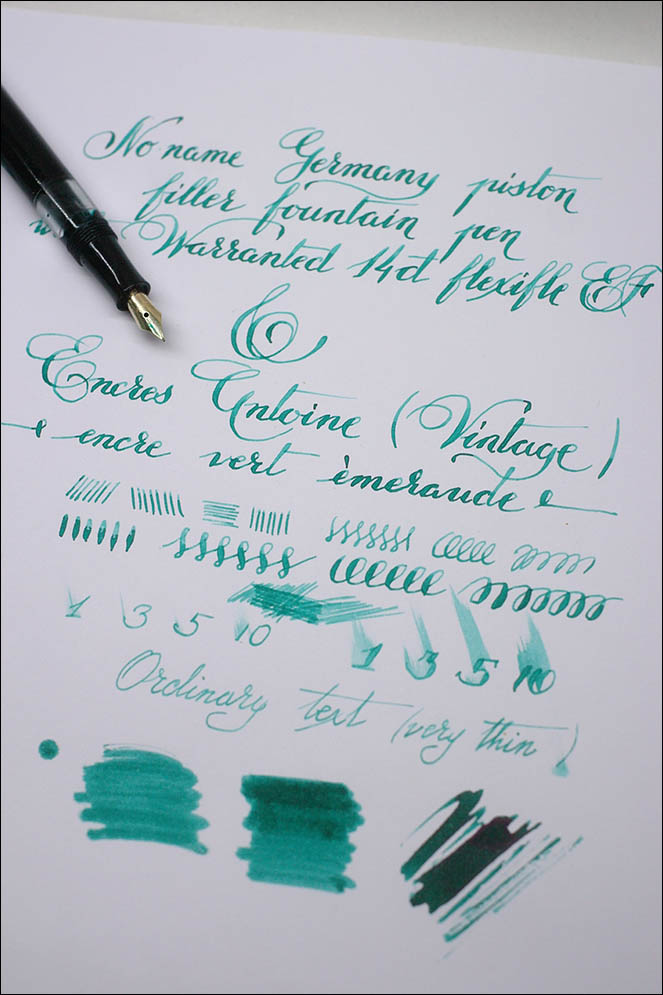 No name Germany piston
filler fountain pen
Warranted 14ct flexifle EF
&
Encres Antoine (Vintage)
encre vert émeraude
1 3 5 10 1 3 5 10
Ordinary text (very thin)